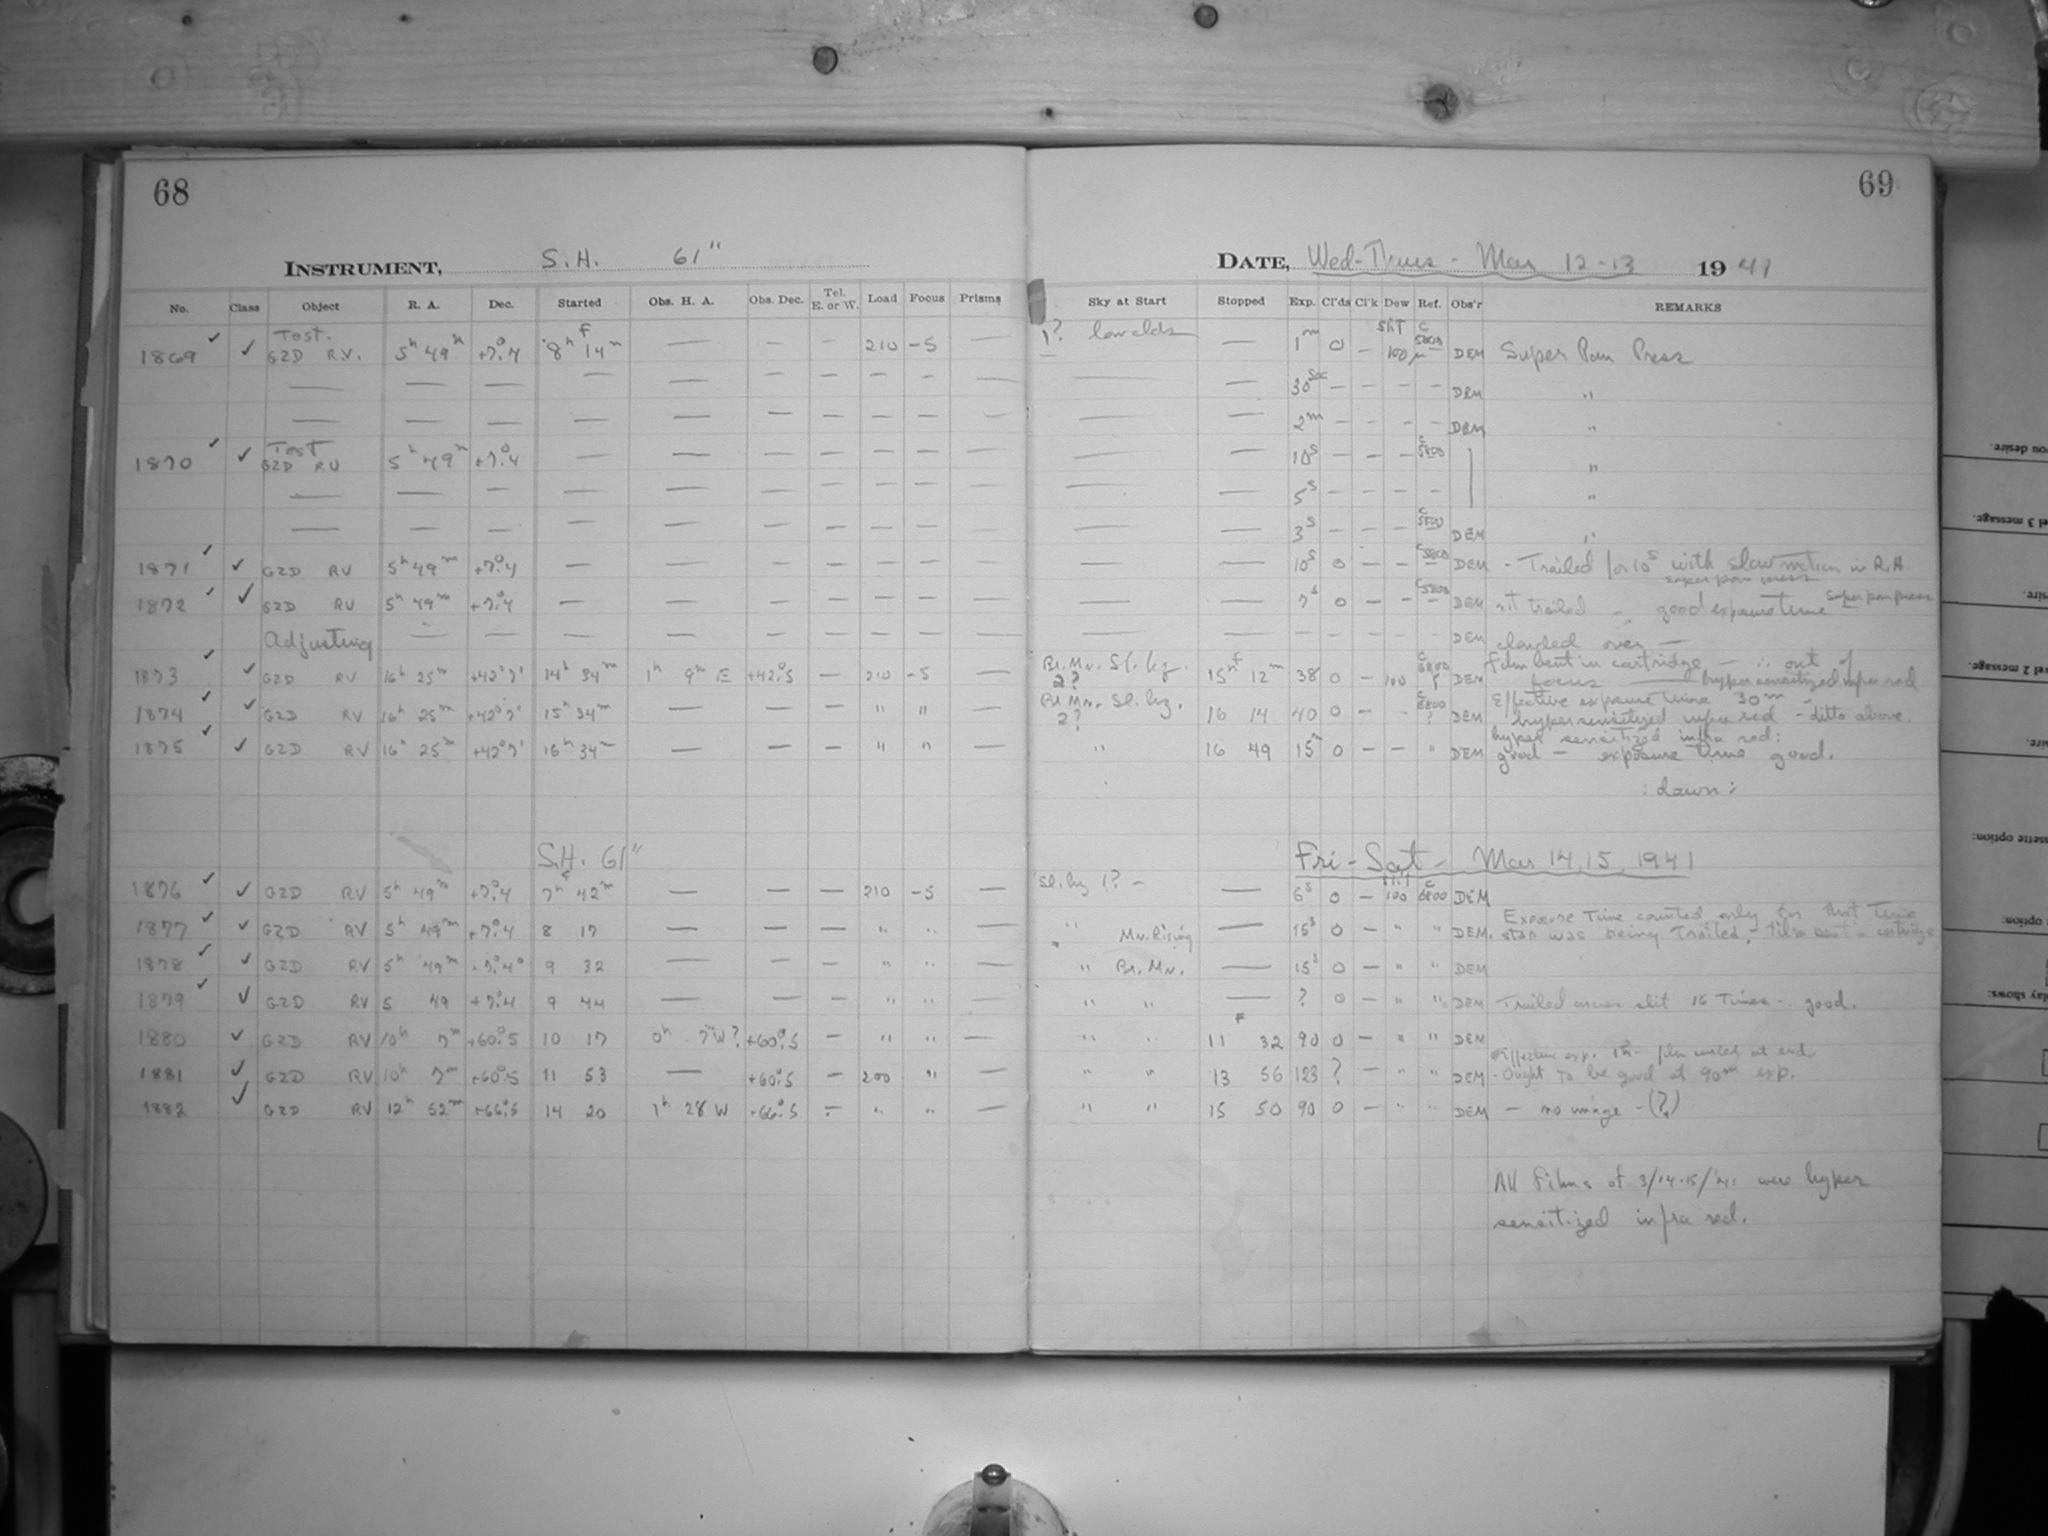 68
INSTRUMENT, S.H. 61"
No. Class Object R. A. Dec. Started Obs. H. A. Obs. Dec. Tel. E. or W. Load Focus Prisms
1869 ✓ Test. GZD RV. 5h 49m +7°.4 8h 14m — - - 210 -5 —
— — — — — — — — — — —
— — — — — — — — — — —
1870 ✓ Test GZD RV 5h 49m +7°.4 — — — — — — —
— — — — — — — — — — —
— — — — — — — — — — —
1871 ✓ GZD RV 5h 49m +7°.4 — — — — — — —
1872 ✓ GZD RV 5h 49m +7°.4 — — — — — — —
Adjusting — — — — — — — — —
1873 ✓ GZD RV 16h 25m +42°7' 14h 34m 1h 9m E +42°.5 — 210 -5 —
1874 ✓ GZD RV 16h 25m +42°7' 15h 34m — — — " " —
1875 ✓ GZD RV 16h 25m +42°7' 16h 34m — — — " " —
S.H. 61"
1876 ✓ GZD RV 5h 49m +7°.4 7h 42m — — — 210 -5 —
1877 ✓ GZD RV 5h 49m +7°.4 8 17 — — — " " —
1878 ✓ GZD RV 5h 49m +7.4° 9 32 — — — " " —
1879 ✓ GZD RV 5 49 +7°.4 9 44 — — — " " —
1880 ✓ GZD RV 10h 7m +60°.5 10 17 0h 7m W? +60°.5 — " " —
1881 ✓ GZD RV 10h 7m +60°.5 11 53 — +60°.5 — 200 " —
1882 ✓ GZD RV 12h 52m +66°.5 14 20 1h 28 W +66°.5 — " " —
69
DATE, Wed-Thurs - Mar 12-13 1941
Sky at Start Stopped Exp. Cl'ds Cl'k Dew Ref. Obs'r REMARKS
1? low clds — 1m 0 — Slit 100μ C 5800 DEM Super Pan Press
— — 30 sec — — — — DEM "
— — 2m — — — — DEM "
— — 10s — — — C 5800 "
— — 5s — — — — "
— — 3s — — — C 5800 DEM "
— — 10s 0 — — C 5800 DEM - Trailed for 10s with slow motion in R.A.
super pan press
— — 7s 0 — — C 5800 DEM not trailed — good exposure time super pan press
— — — — — — — DEM clouded over —
Br. Mn. Sl. hz. 2? 15h 12m 38 0 — 100 C 6800 ? DEM film bent in cartridge — ∴ out of
focus — hypersensitized infra red
Br. Mn. Sl. hz. 2? 16 14 40 0 — — C 6800 ? DEM Effective exposure time 30m -
hypersensitized infra red - ditto above.
" 16 49 15m 0 — — " DEM hyper sensitized infra red:
good — exposure time good.
: dawn :
Fri - Sat - Mar 14, 15, 1941
Sl. hz 1? - — 6s 0 — slit 100 C 6800 DEM
" Mn. Rising — 15s 0 — " " DEM. Exposure time counted only for that time
star was being trailed, film bent in cartridge
" Br. Mn. — 15s 0 — " " DEM
" " — ? 0 — " " DEM Trailed across slit 16 times - good.
" " 11 32 90 0 — " " DEM
" " 13 56 123 ? — " " DEM Effective exp. film at end.
- Ought to be good at 90m exp.
" " 15 50 90 0 — " " DEM — no image - (?)
All films of 3/14-15/41 were hyper
sensitized infra red.
you desire.
vel 3 message.
sire.
vel 2 message.
ire.
ssette option:
option:
lay shows: